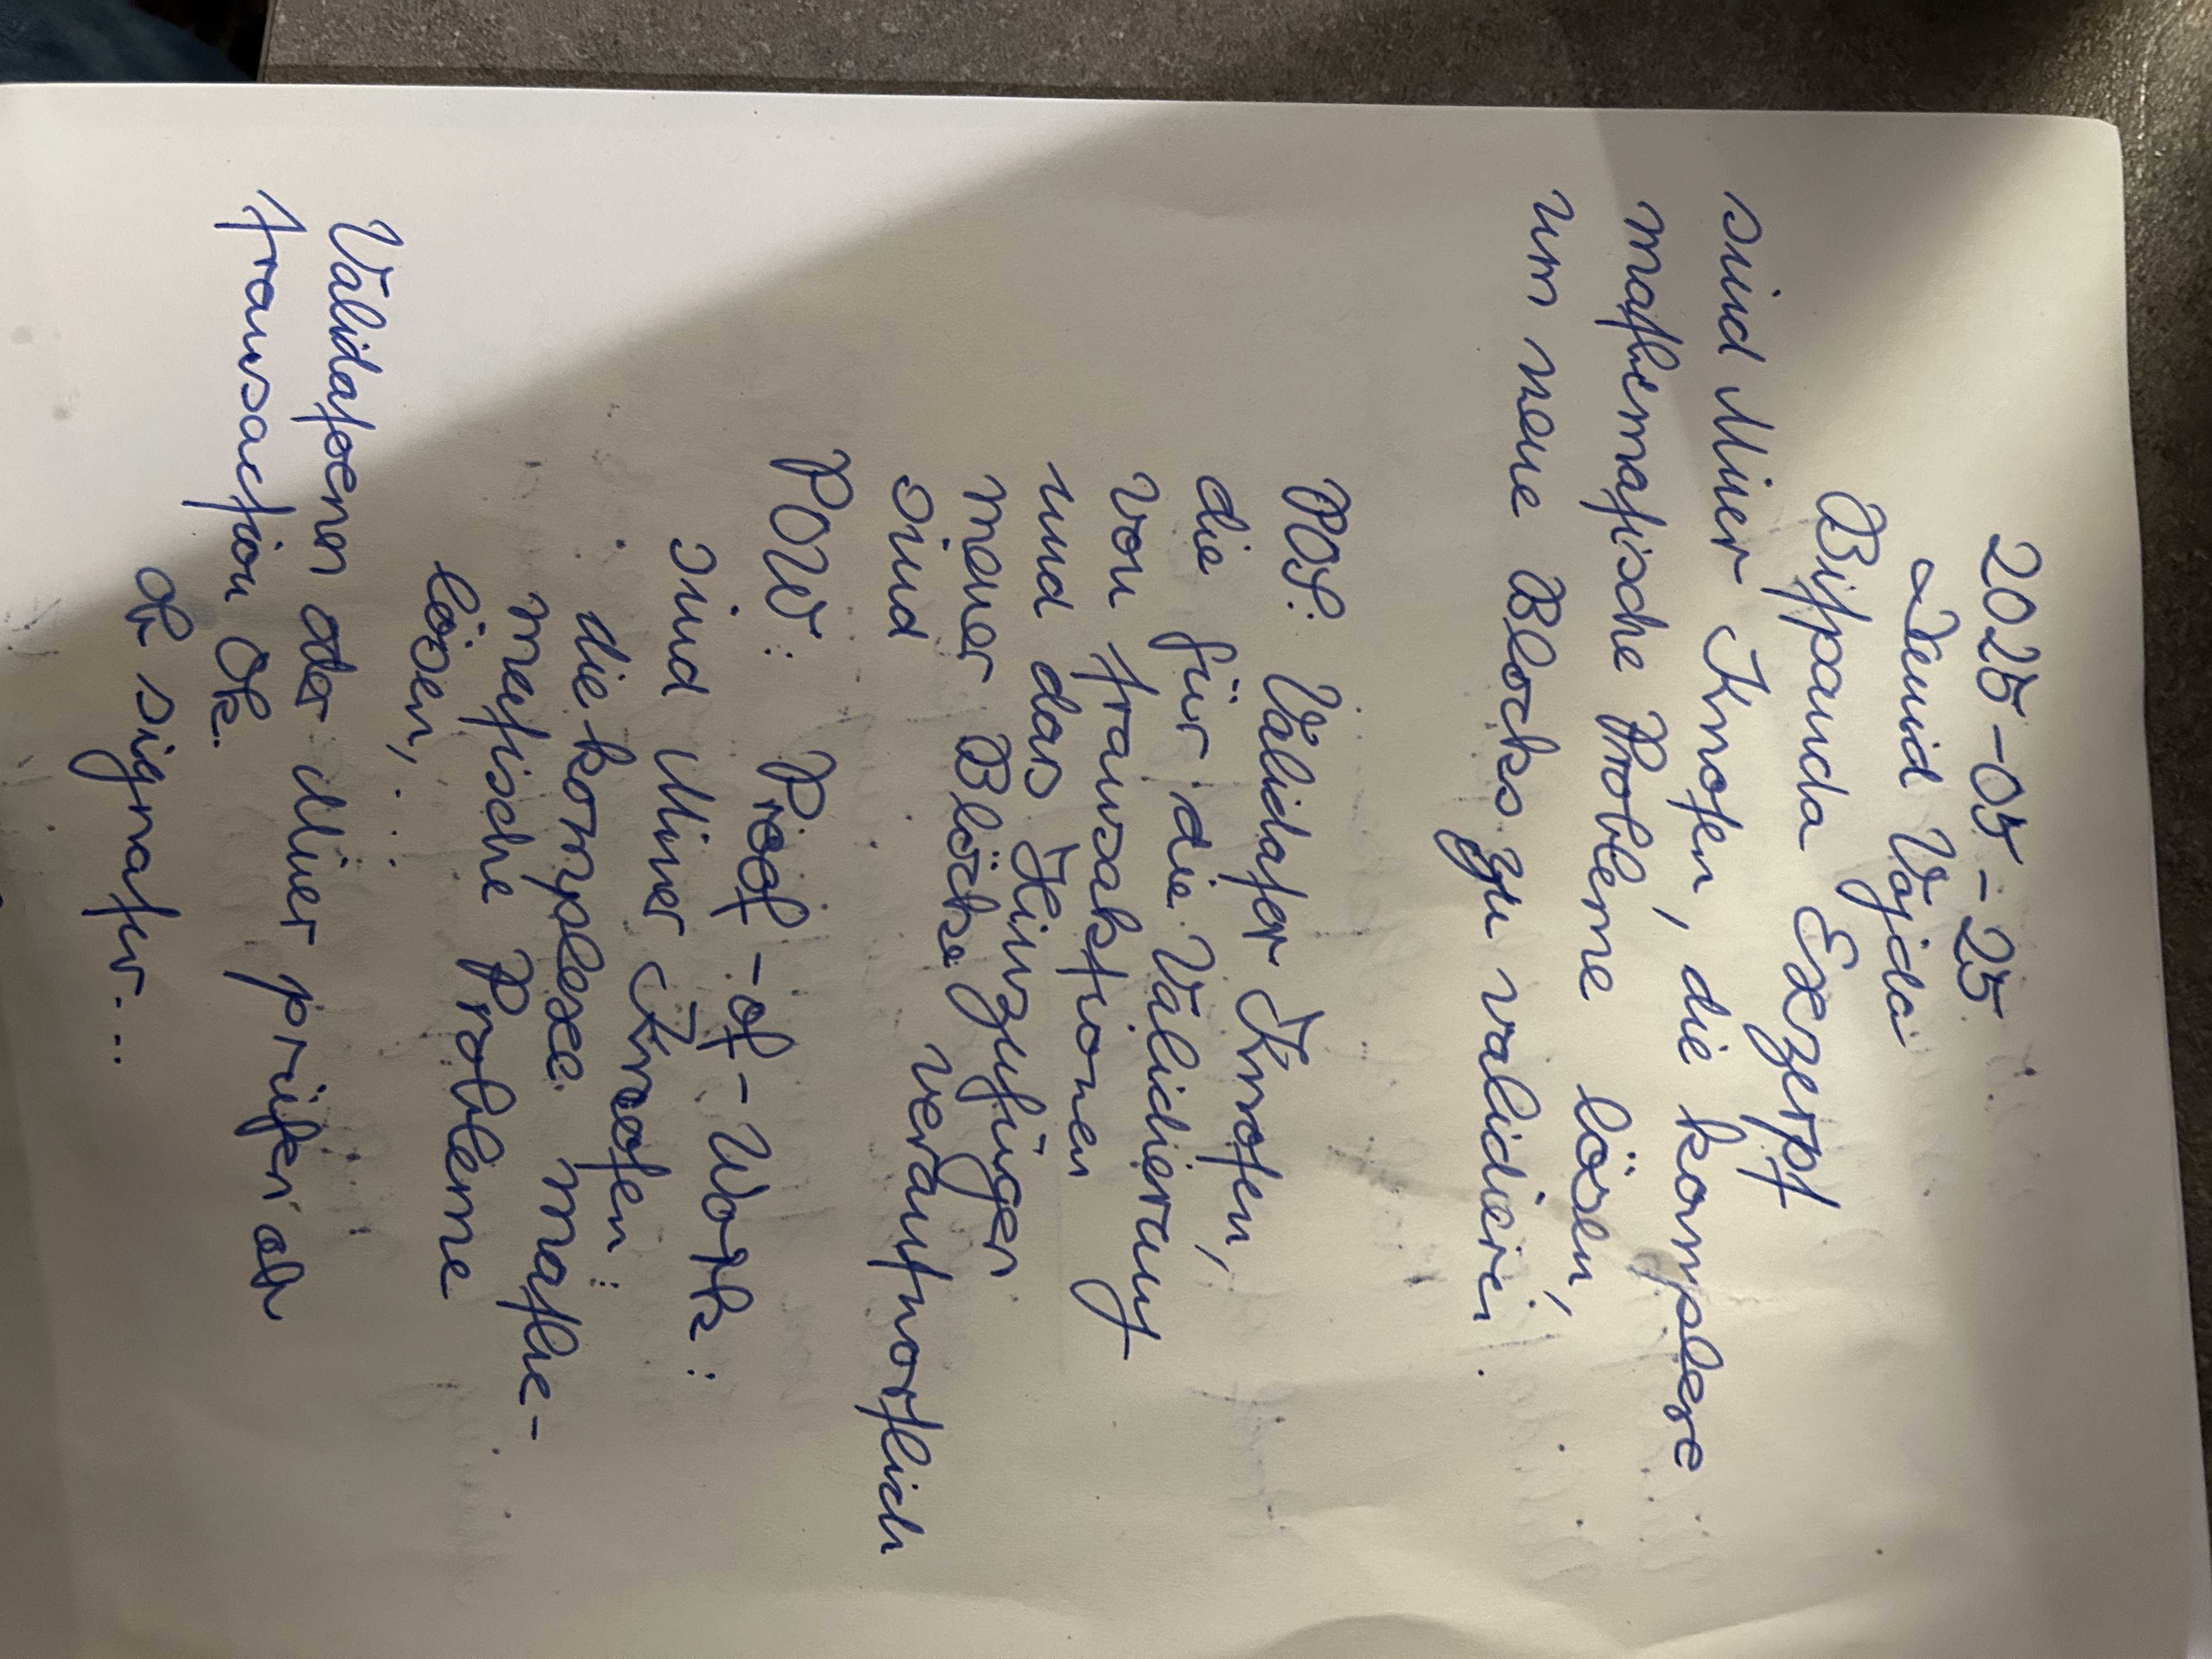 2025-05-25
David Vajda
Bitpanda Exzerpt
sind Miner Knoten, die komplexe
mathematische Probleme lösen,
um neue Blocks zu validieren.
POS: Validator Knoten,
die für die Validierung
von Transaktionen
und das Hinzufügen
neuer Blöcke
sind verantwortlich
POW: Proof-of-Work:
sind Miner Knoten:
die komplexe mathe-
matische Probleme
lösen,
Validatoren oder Miner prüfen ob
Transaction Ok.
Ob signatur...